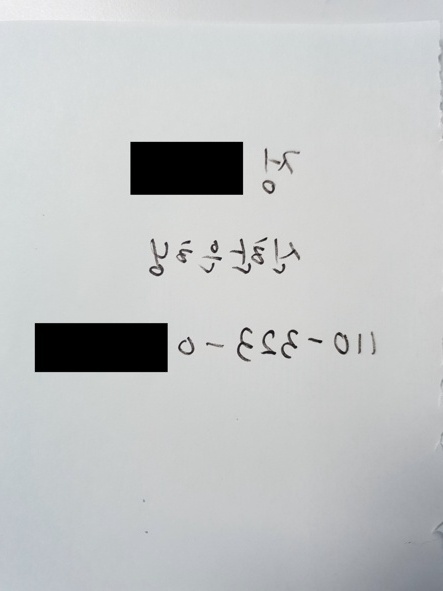 장
신한은행
110-323-0